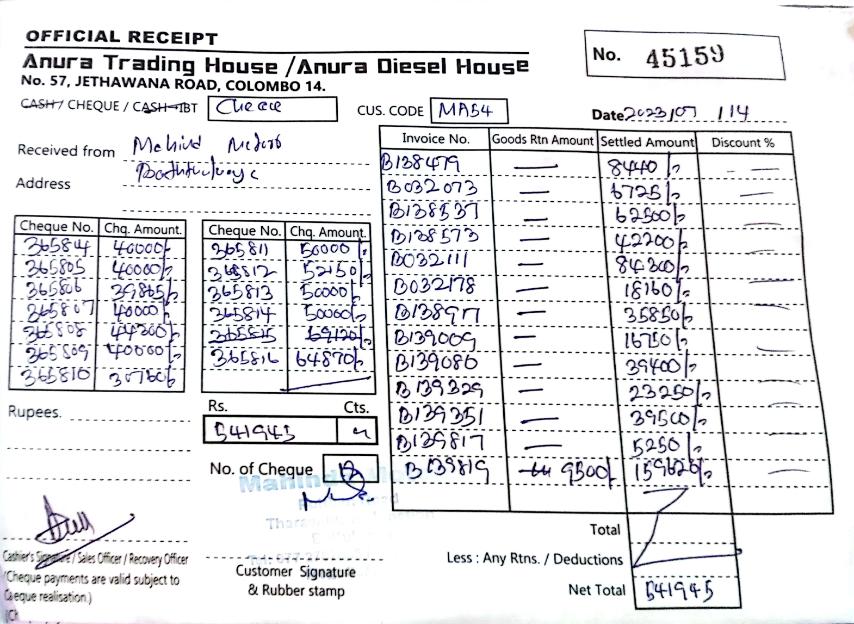 OFFICIAL RECEIPT
No. 45159
Anura Trading House /Anura Diesel House
No. 57, JETHAWANA ROAD, COLOMBO 14.
CASH / CHEQUE / CASH IBT
CUS. CODE MA54
Date 2023/07/14
Received from
Address
Invoice No. Goods Rtn Amount Settled Amount Discount %
B138479 — 8440/- —
B032073 — 6725/- —
B138537 — 62500/- —
B138573 — 42200/- —
B032111 — 84300/- —
B032178 — 18160/- —
B138977 — 35850/- —
B139009 — 16750/- —
B139080 — 39400/- —
B139329 — 23250/- —
B139351 — 39500/- —
B139817 — 5250/- —
B139819 9500/- 159620/- —
Cheque No. Chq. Amount.
365804 40000/-
365805 40000/-
365806 39865/-
365807 40000/-
365808 44200/-
365809 40000/-
365810
Cheque No. Chq. Amount.
365811 50000/-
365812 52150/-
365813 50000/-
365814 50000/-
365815 69120/-
365816 64870/-
Rupees.
Rs. Cts.
541945
No. of Cheque
Total
Less : Any Rtns. / Deductions
Net Total 541945
Cashier's Signature / Sales Officer / Recovery Officer
(Cheque payments are valid subject to
Cheque realisation.)
Customer Signature
& Rubber stamp